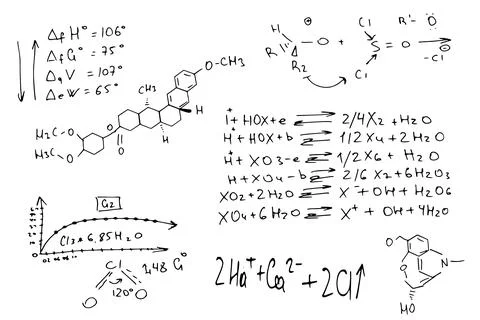 ΔfH° = 106°
ΔfG° = 75°
ΔqV = 107°
ΔeW = 65°
O-CH₃
CH₃
H
H
H₂C-O
H₃C-O
O
O
H
R
R₂
O
+
Cl
S=O
Cl
R'-O
-Cl
I⁺+HOX+e ⇌ 2/4X₂+H₂O
H+HOX+b ⇌ 1/2X₄+2H₂O
H⁺+XO₃-e ⇌ 1/2X₆+H₂O
H+XO₄-b ⇌ 2/6X₂+6H₂O₃
XO₂+2H₂O ⇌ X⁺+OH+H₂O₆
XO₄+6H₂O ⇌ X⁺+OH+4H₂O
G₂
Cl₃*6,85H₂O
Cl
1,48 G°
120°
O
O
2Ha⁺+Ca²⁻+2Cl↑
O
O
N
HO